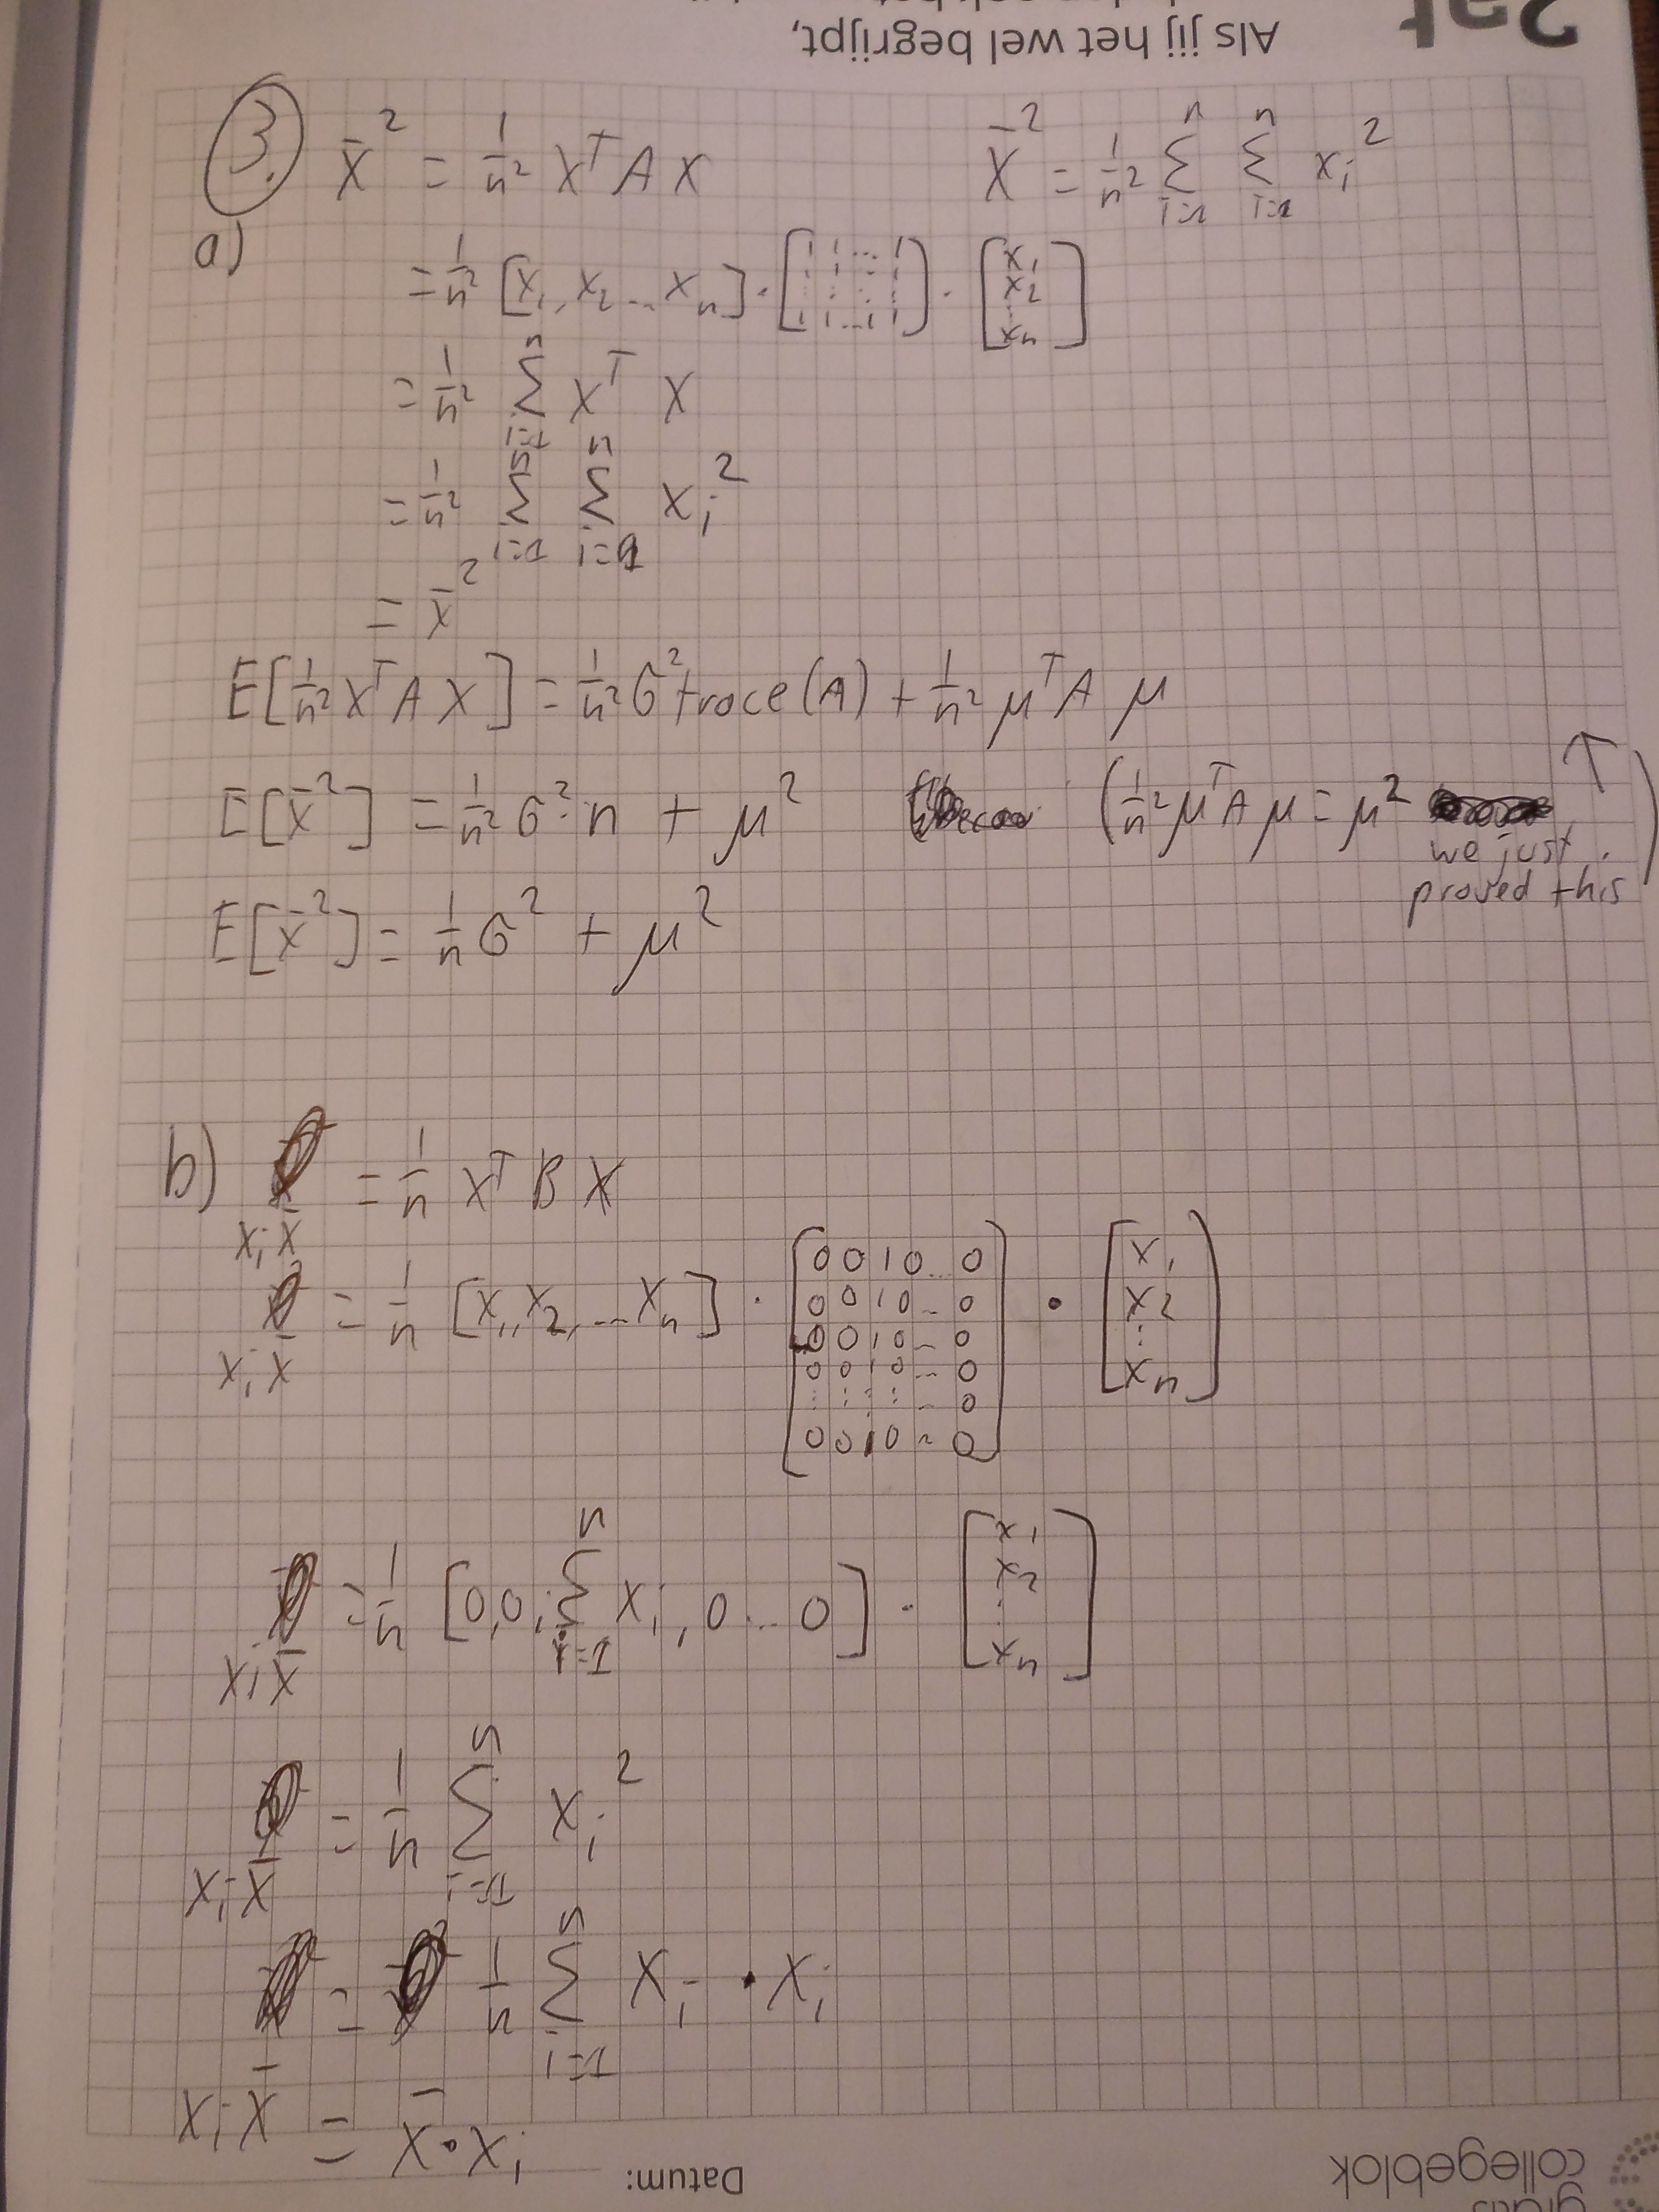 Als jij het wel begrijpt,
3. x̄² = 1/n² Xᵀ A X x̄² = 1/n² Σⁿᵢ₌₁ Σⁿᵢ₌₁ xᵢ²
a)
= 1/n² [x₁, x₂ ... xₙ] · [1 1 ... 1 ⋮ 1 1 ... 1 1] · [x₁ x₂ ⋮ xₙ]
= 1/n² Σⁿᵢ₌₁ Xᵀ X
= 1/n² Σⁿᵢ₌₁ Σⁿᵢ₌₁ xᵢ²
= x̄²
E[1/n² Xᵀ A X] = 1/n² σ² trace(A) + 1/n² μᵀ A μ
E[x̄²] = 1/n² σ² · n + μ² (1/n² μᵀ A μ = μ² we just proved this ↑)
E[x̄²] = 1/n σ² + μ²
b) xᵢ x̄ = 1/n Xᵀ B X
xᵢ x̄ = 1/n [x₁, x₂, ... xₙ] · [0 0 1 0 ... 0
0 0 1 0 ... 0
0 0 1 0 ... 0
0 0 1 0 ... 0
⋮ ⋮ ⋮ ⋮ ... 0
0 0 1 0 ... 0] · [x₁ x₂ ⋮ xₙ]
xᵢ x̄ = 1/n [0, 0, Σⁿᵢ₌₁ xᵢ, 0 ... 0] · [x₁ x₂ ⋮ xₙ]
xᵢ x̄ = 1/n Σⁿᵢ₌₁ xᵢ²
= 1/n Σⁿᵢ₌₁ xᵢ · xᵢ
xᵢ x̄ = x̄ · xᵢ
Datum:
collegeblok